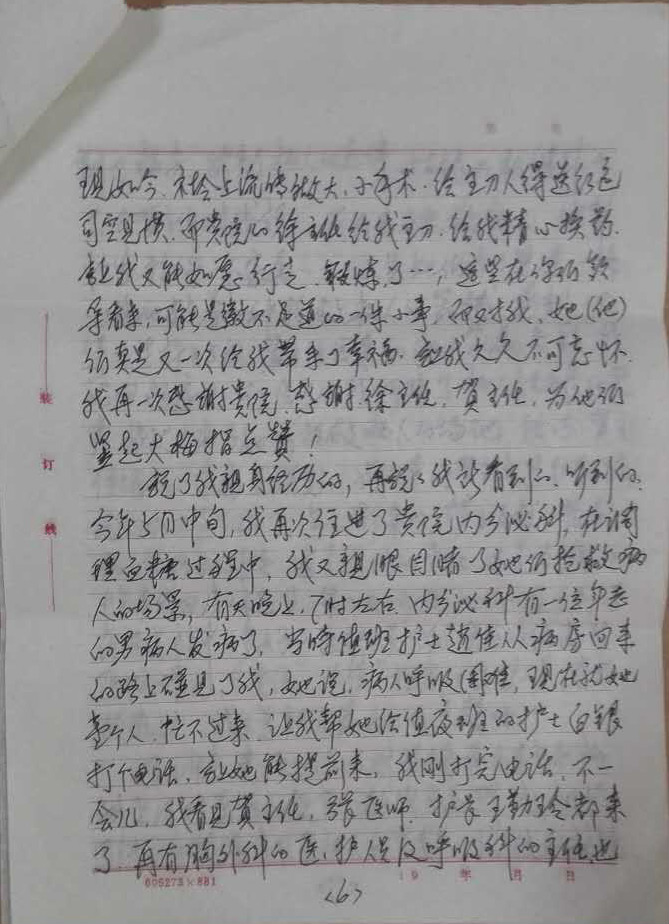 现如今,社会上流传做大、小手术,给主刀人得送红包
司空见惯,而贵院的徐主任给我主刀,给我精心换药,
让我又能如愿行走、锻炼了…,这些在你们领
导看来,可能是微不足道的一件小事,而又对我,她(他)
们真是又一次给我带来了幸福,让我久久不可忘怀.
我再一次感谢贵院,感谢徐主任,贺主任,为他们
竖起大梅指点赞!
说了我亲身经历的,再说说我所看到的、听到的.
今年5月中旬,我再次住进了贵院内分泌科,在调
理血糖过程中,我又亲眼目睹了她们抢救病
人的场景,有天晚上,7时左右,内分泌科有一位年老
的男病人发病了,当时值班护士赵佳从病房回来
的路上碰见了我,她说,病人呼吸困难,现在就她
壹个人,忙不过来,让我帮她给值夜班的护士白银
打个电话,让她能提前来,我刚打完电话,不一
会儿,我看见贺主任,张医师,护长王勤玲都来
了,再有胸外科的医、护人员及呼吸科的主任也
装
订
线
606273×881
19 年 月 日
<6>